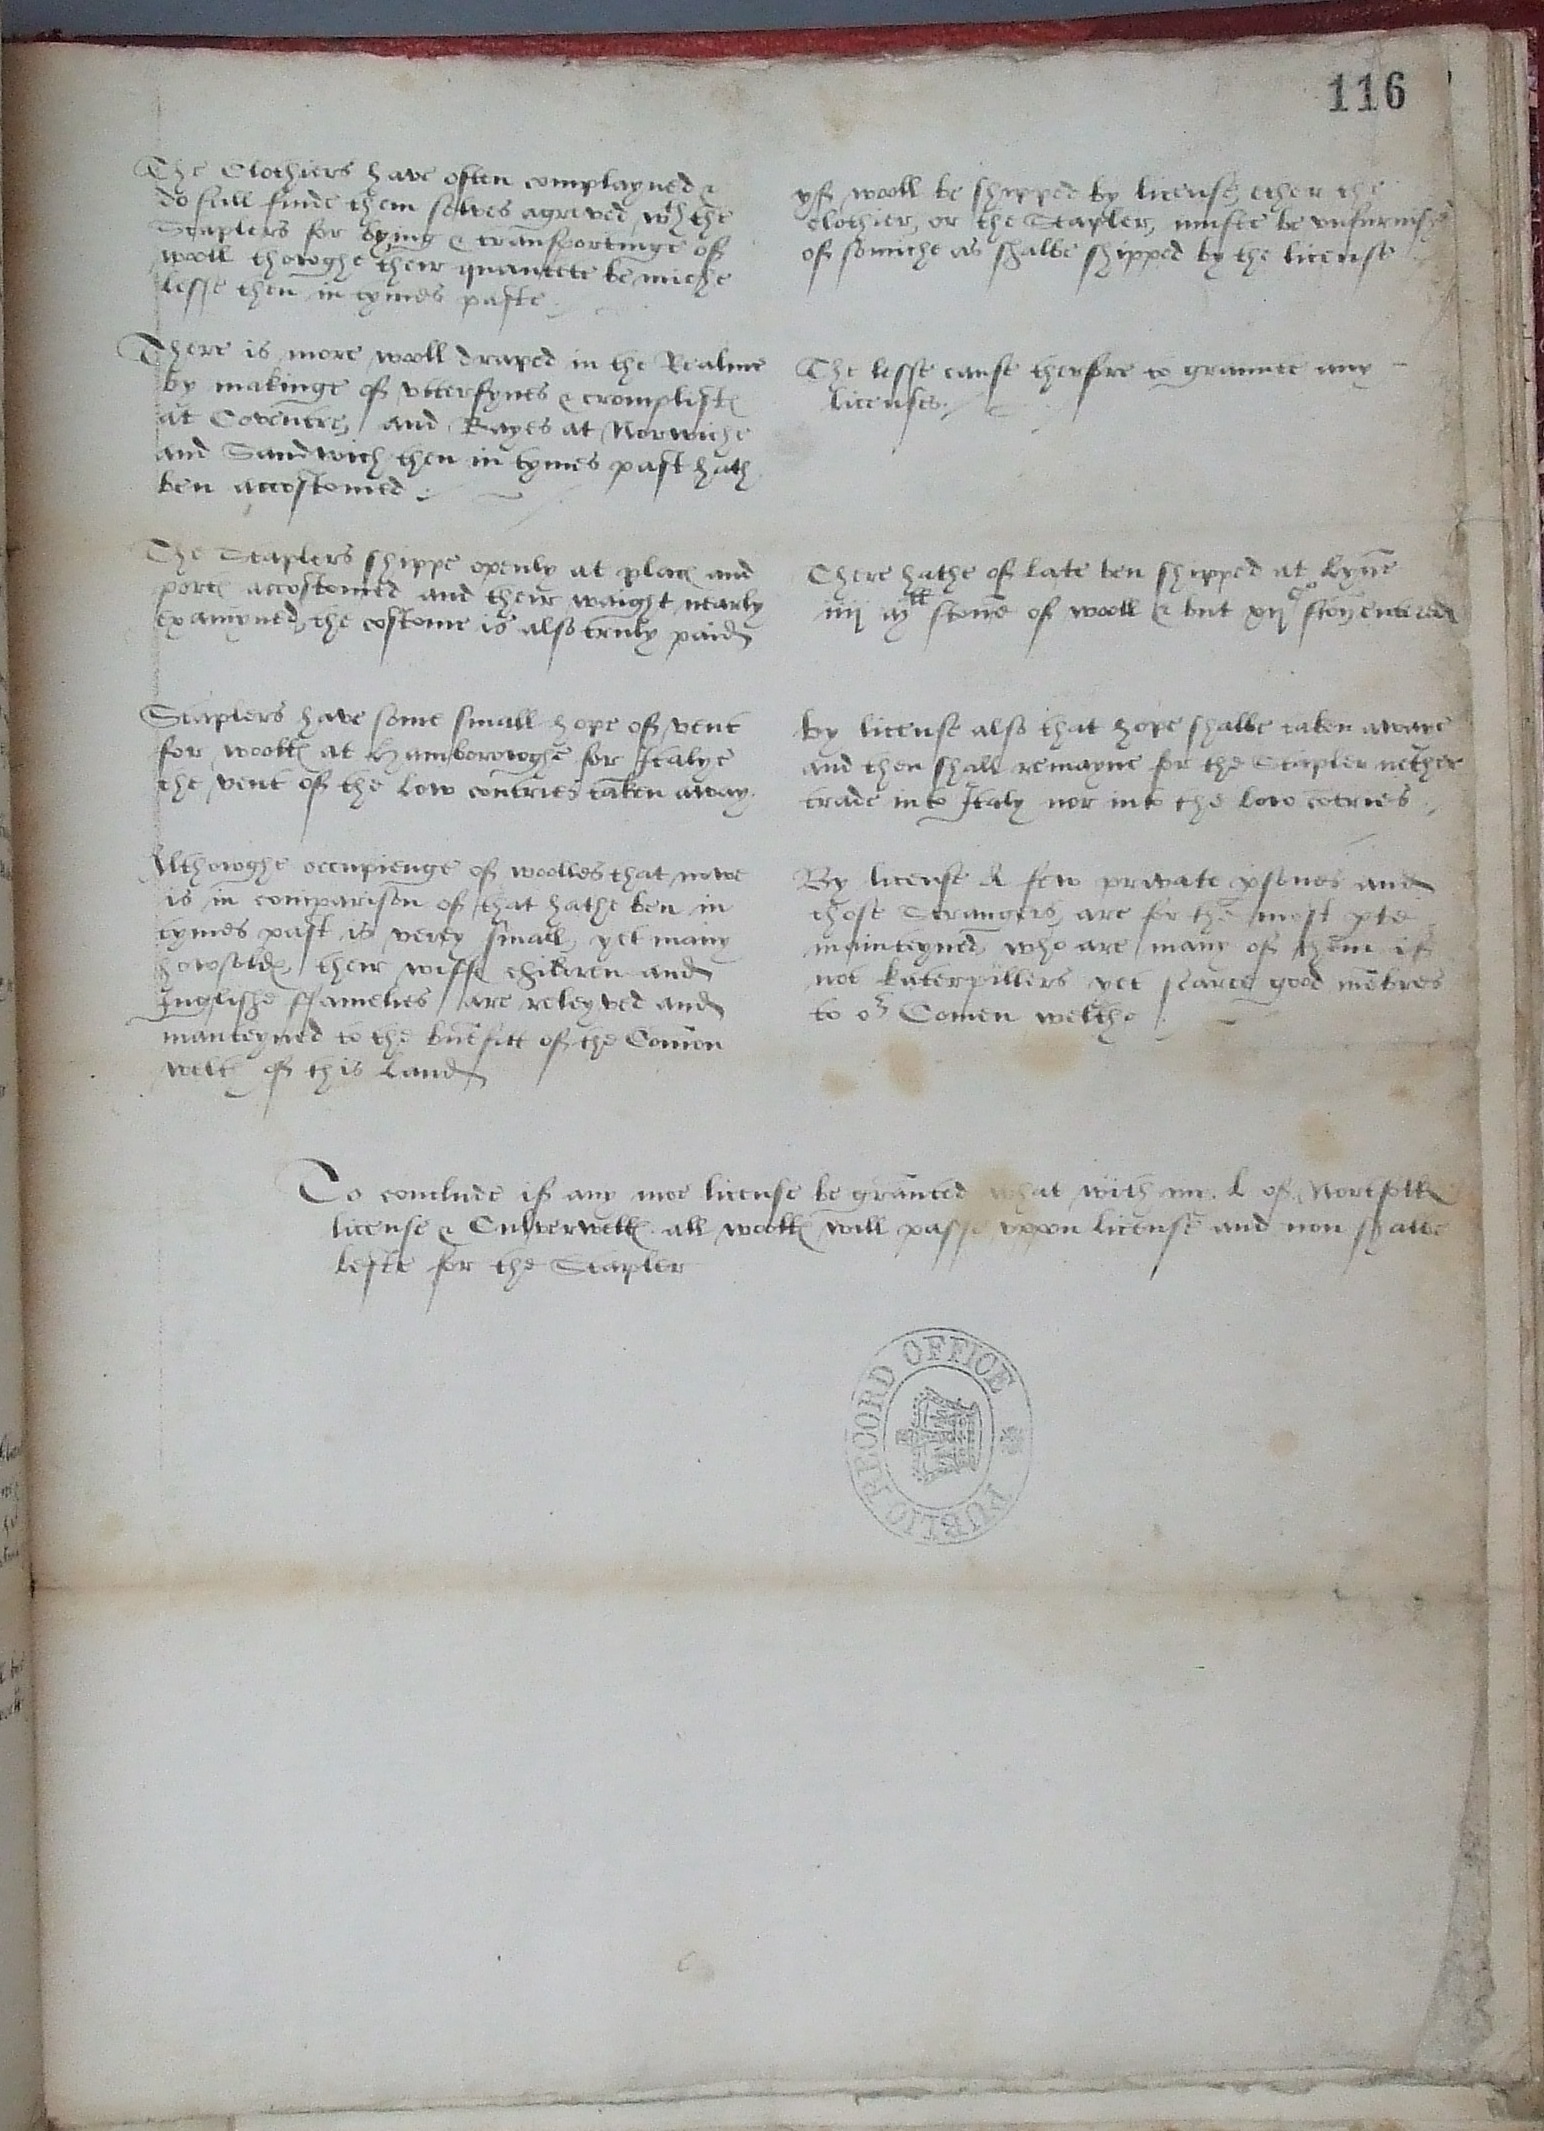 116
The Clothiers have often complayned &
do still finde them selves agreved wth the
Staplers for bying & transportinge of
wooll thowghe their quantete be miche
lesse then in tymes paste
yf wooll be shipped by license ether the
clothier, or the Stapler, muste be unfurnish
of somiche as shalbe shipped by the license
There is more wooll draped in the Realme
by makinge of & 
at Coventre, and Bayes at Norwiche
and Sandwich then in tymes past hath
ben accostomed
The lesse cause therfore to graunte any
licenses
The Staplers shippe openly at places and
portes accostomed and their waight nearly
examyned, the costome is also truly paid
There hathe of late ben shipped at Lynne
iiij stone of wooll & but xij c ston entered
Staplers have some small hope of vent
for woolles at Hamborowghe for Italye
the vent of the low contries taken away
by license also that hope shalbe taken awaye
and then shall remayne for the Stapler nether
trade into Italy nor into the low cotries
Althowghe occupienge of woolles that nowe
is in comparison of that hathe ben in
tymes past is verey small, yet many
howsoldes, their wiffes children and
Inglishe ffamelies are releyved and
manteyned to the benefitt of the Comon
welth of this land
By license A few private psones and
those Strangers, are for the most pte
mainteyned who are many of them if
not katerpillers yet scarce good mebres
to or Comen welthe
To conclude if any moe license be graunted what with my L of Norfolk
license & Culverwelles all woolles will passe uppon license and non shalbe
lefte for the Stapler
PUBLIC RECORD OFFICE